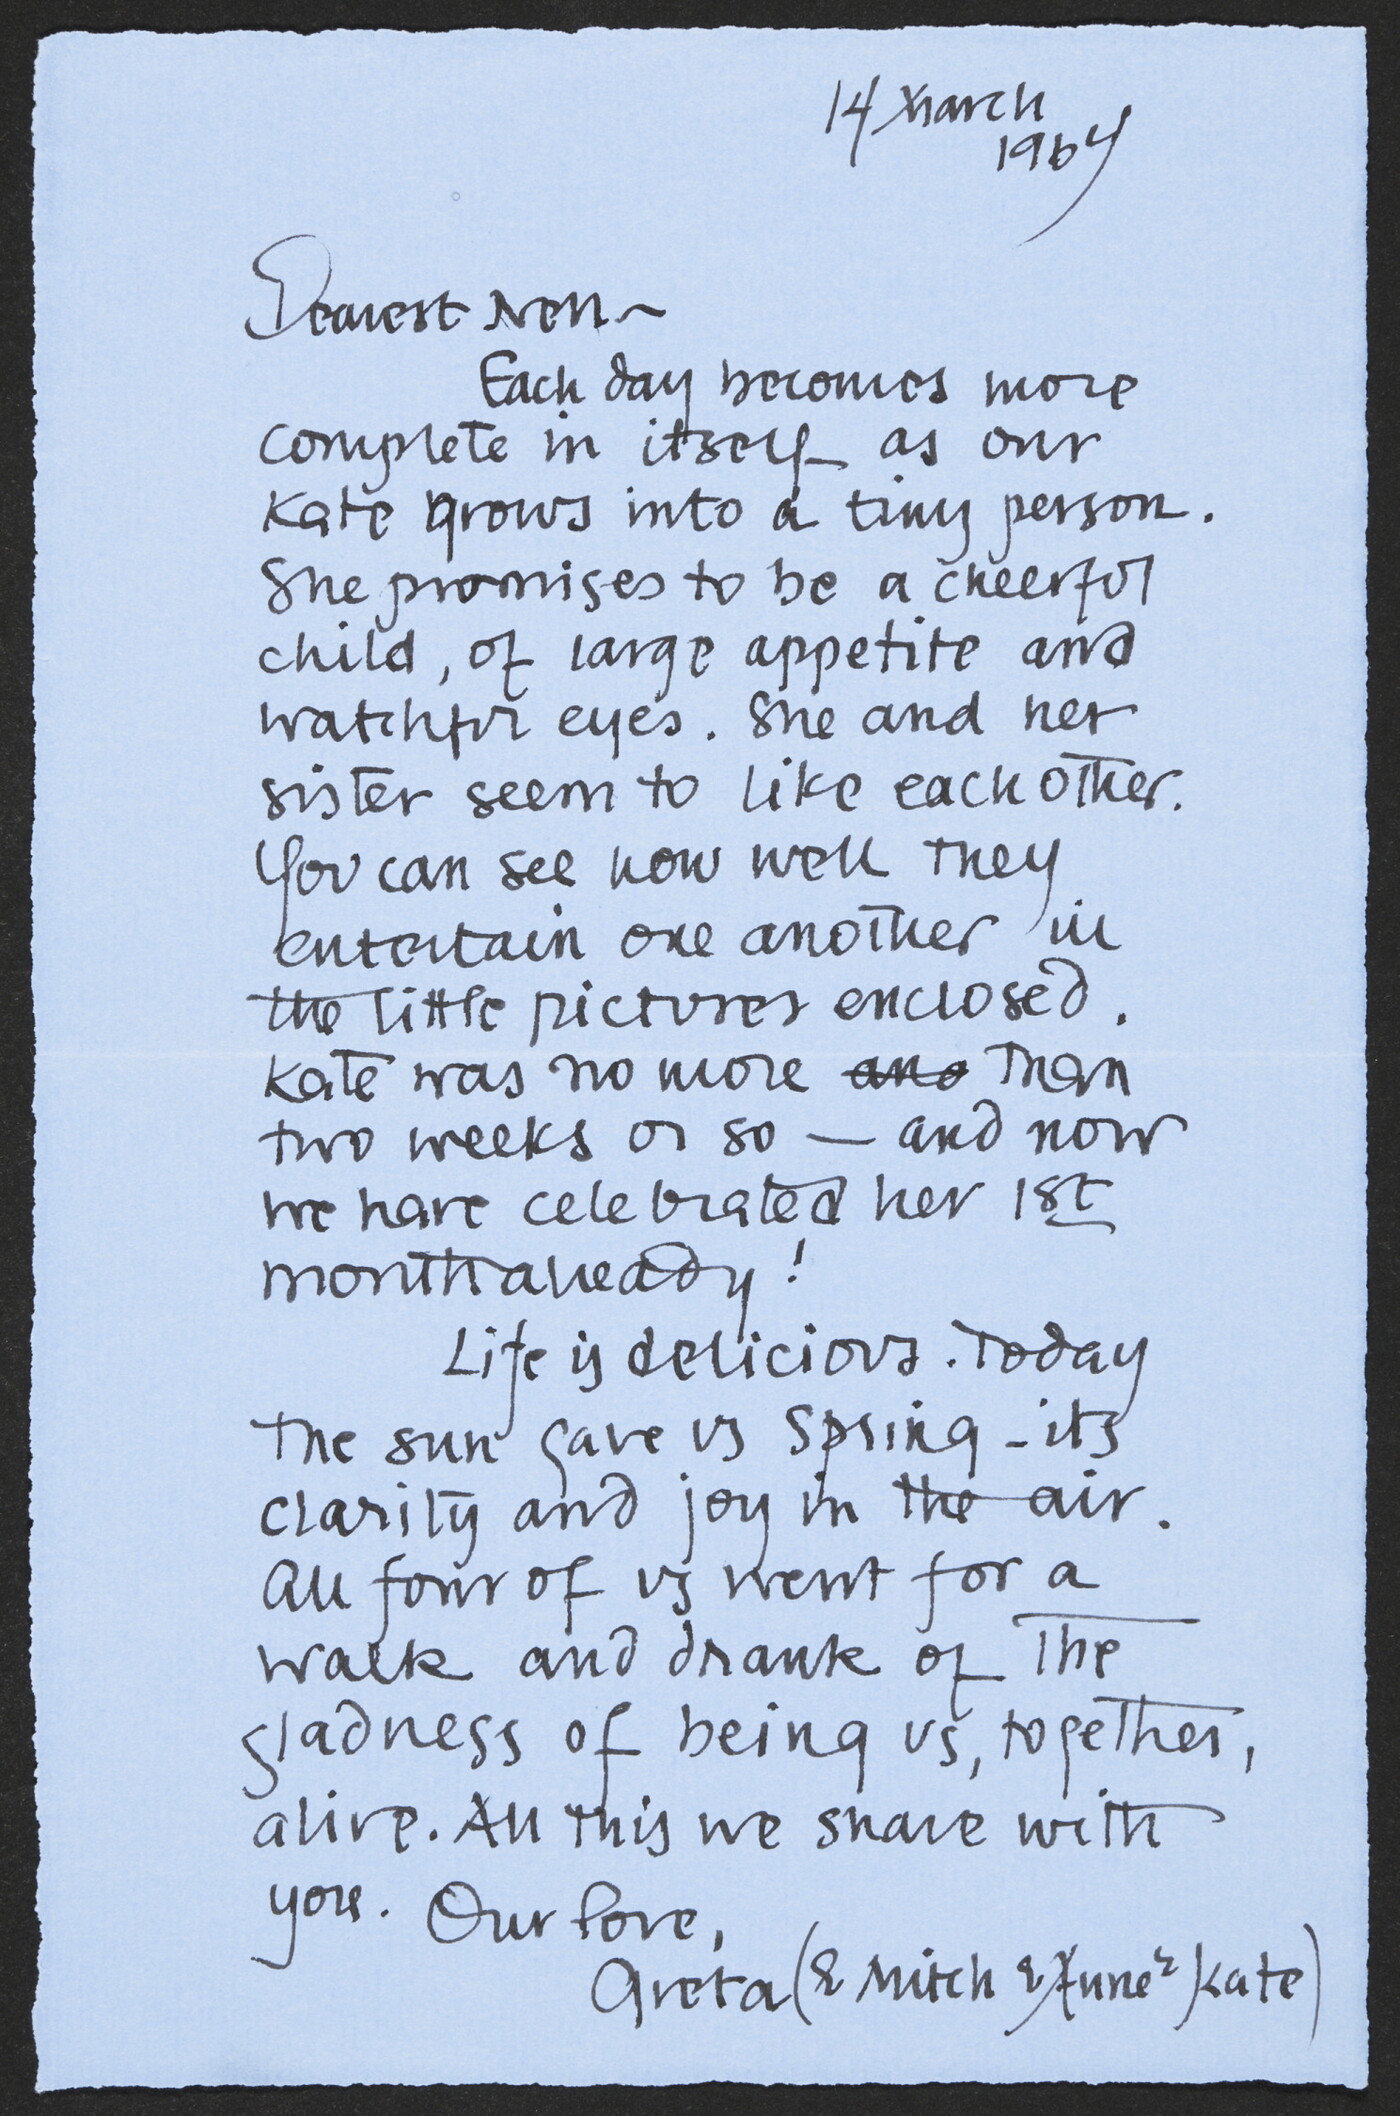 14 March
1964
Dearest Nell ~
Each day becomes more
complete in itself as our
Kate grows into a tiny person.
She promises to be a cheerful
child, of large appetite and
watchful eyes. She and her
sister seem to like each other.
You can see how well they
entertain one another in
the little pictures enclosed.
Kate was no more ano than
two weeks or so — and now
we have celebrated her 1st
month already!
Life is delicious. Today
the sun gave us Spring - its
clarity and joy in the air.
All four of us went for a
walk and drank of the
gladness of being us, together,
alive. All this we share with
you. Our love,
Greta (& Mitch & June & Kate)